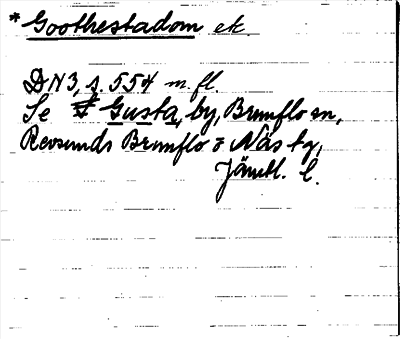 * Goothestadom ek.
DN3, s. 554 m. fl.
Se Gusta, by, Brunflo sn,
Revsunds Brunflo o Näs tg,
Jämtl. l.